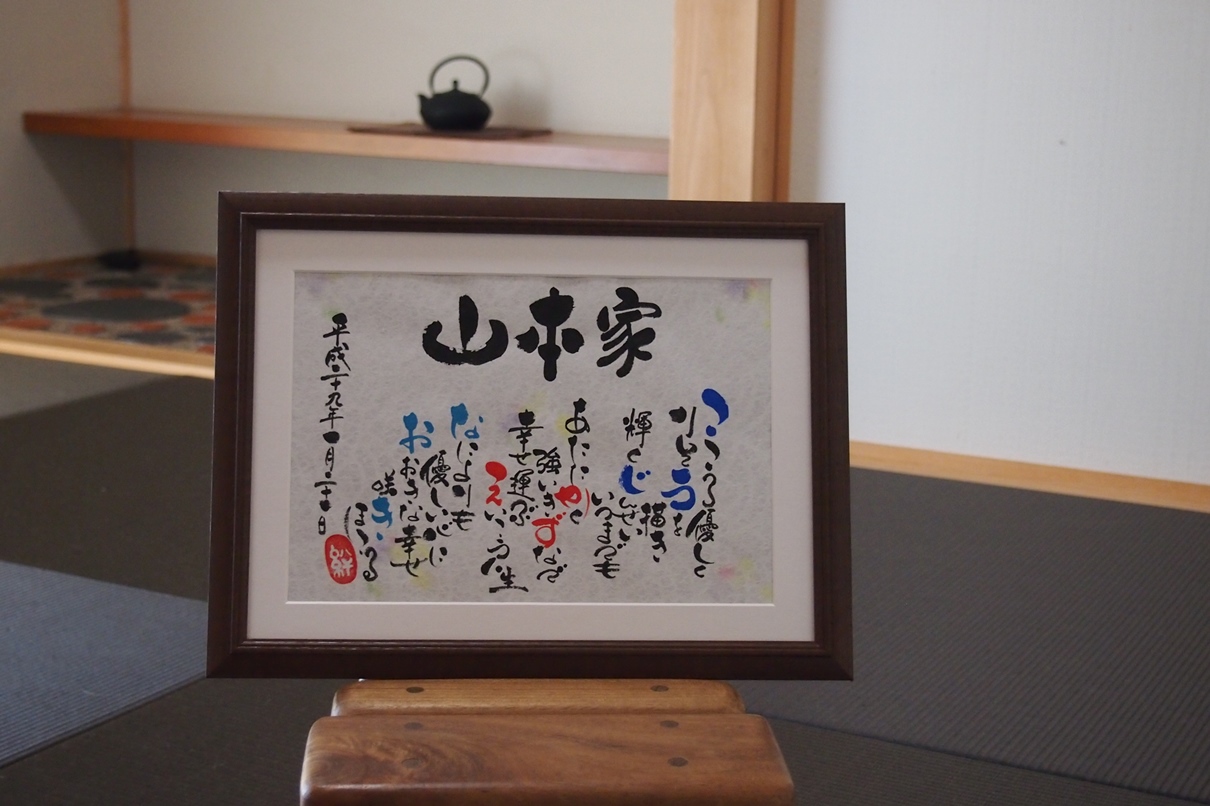 山本家
こころ優しく
りそうを
描き
輝くじんせい
いつまでも
あたたかく
強いきずなで
幸せ運ぶ
なによりも
優しい心に
おおきな幸せ
咲き
ほこる
平成二十九年一月二十日